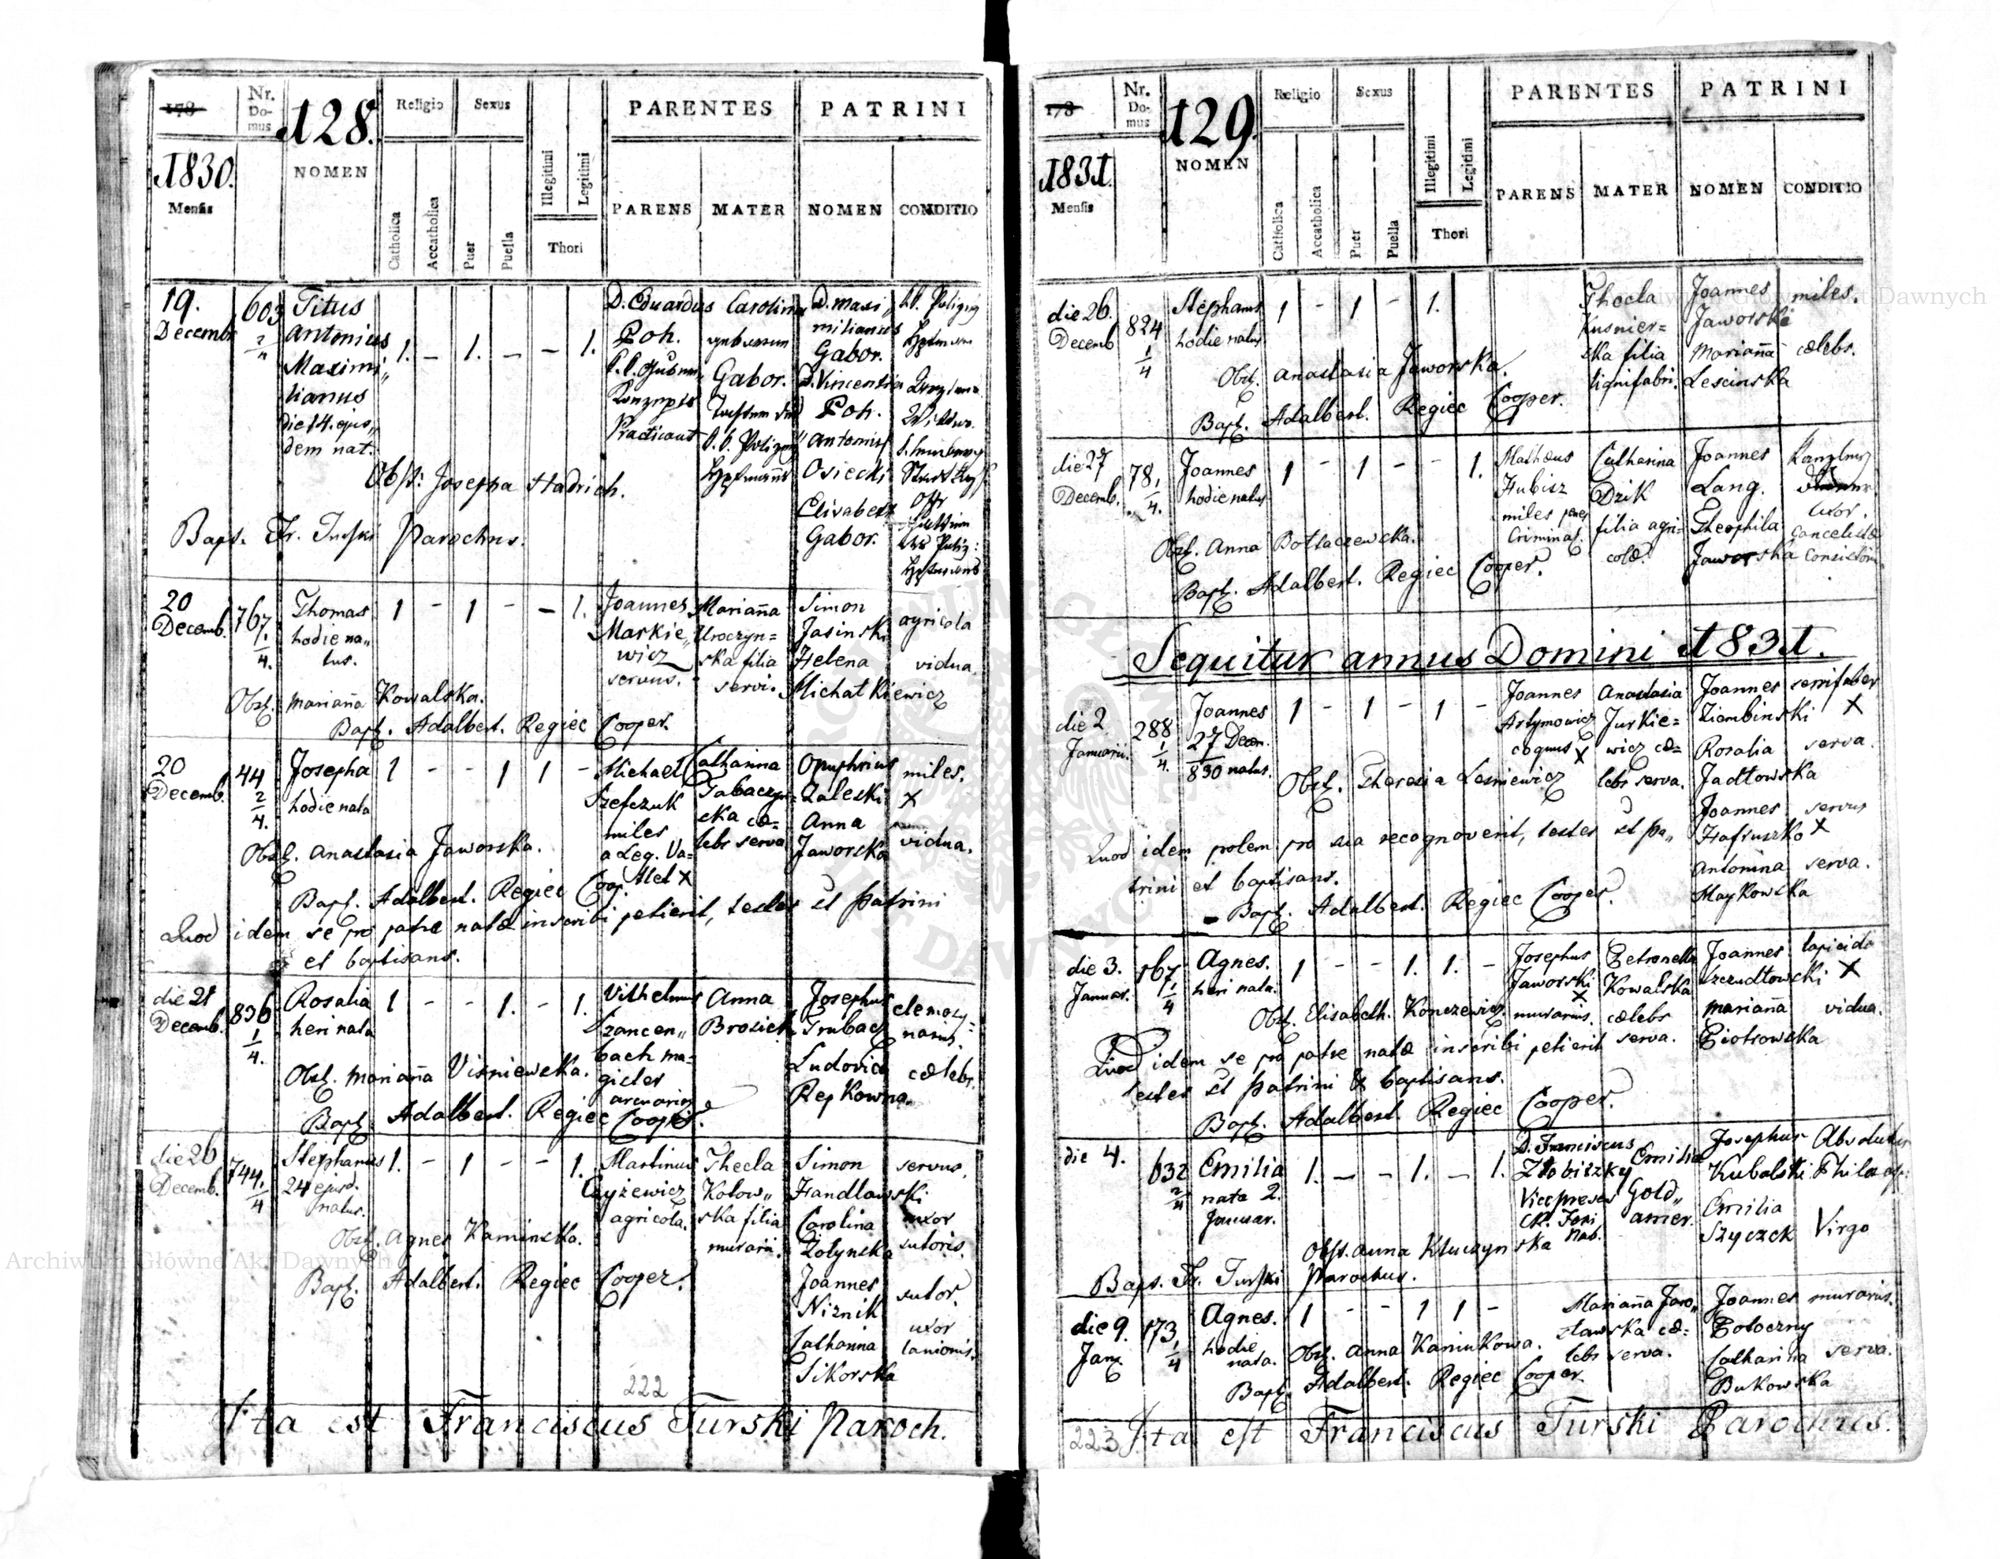 178
Nr. Domus
128.
Religio
Sexus
PARENTES
PATRINI
1830.
Mensis
NOMEN
Catholica
Accatholica
Puer
Puella
Illegitimi
Legitimi
Thori
PARENS
MATER
NOMEN
CONDITIO
19. 603 Titus D. Eduardus Carolina D. Maxi
Decemb. 2/4 Antonius Poh. milianus
Maximi 1. – 1. – – 1. Gabor. Gabor.
lianus D. Vincentia
die 14. ejus Practicant Poh.
dem nat. Antonius
Obst: Josepha Hadrich. Osiecki
Elisabeth
Bapt. Fr. Turski Parochus. Gabor.
20 767 Thomas 1 – 1 – – 1. Joannes Marianna Simon agricola
Decemb. 1/4. hodie na- Markie- Uroczyn= Jasinski
tus. wicz ska filia Helena vidua
servus. servi. Michalkiewicz
Obst. Marianna Kowalska.
Bapt. Adalbert. Regiec Cooper.
20 44 Josepha 1 – – 1 1 – Michael Catharina Onuphrius miles.
Decemb. 2/4. hodie nata Szefczuk Tabaczyn= Zaleski X
miles ska cæ= Anna
Obst. Anastasia Jaworska. a Leg. Va- lebs serva Jaworska vidua.
Bapt. Adalbert. Regiec Coop. X
Quod idem se pro patre natæ inscribi petierit, testes st patrini
et baptisans.
die 21 836 Rosalia 1 – – 1. – 1. Vilhelmus Anna Josephus elemozy=
Decemb. 1/4. heri nata Szancen- Brosick Trubacz narius.
Obst. Marianna Visniewska. bach ma- Ludovica cælebs.
gister Repkowna.
Bapt. Adalbert. Regiec Cooper.
die 26 744. Stephanus 1. – 1 – – 1. Martinus Thecla Simon servus.
Decemb. 1/4 24 ejusd. Czyżewicz Kolow- Handlowski
natus. agricola. ska filia Carolina uxor
Obst. Agnes Kaminska. murarii. Zolynska sutoris.
Bapt. Adalbert. Regiec Cooper. Joannes sutor.
Niznik uxor
Catharina lanionis.
Sikorska
222
Ita est Franciscus Turski Paroch.
178
Nr. Domus
129.
Religio
Sexus
PARENTES
PATRINI
1831.
Mensis
NOMEN
Catholica
Accatholica
Puer
Puella
Illegitimi
Legitimi
Thori
PARENS
MATER
NOMEN
CONDITIO
die 26. 824 Stephanus 1 – 1 – 1. Thecla Joannes miles.
Decemb 1/4 hodie natus Kusnier= Jaworski
Obst. Anastasia Jaworska. ska filia Marianna cælebs.
lignifabri. Lescinska
Bapt. Adalbert. Regiec Cooper.
die 27 78. Joannes 1 – 1 – – 1. Matheus Catharina Joannes
Decemb. 1/4. hodie natus Hubisz Dzik Lang.
miles penes filia agri- Theophila uxor.
Obst. Anna Criminal. colæ. Jaworska
Bapt. Adalbert. Regiec Cooper.
Sequitur annus Domini 1831.
die 2. 288 Joannes 1 – 1 – 1 – Joannes Anastasia Joannes serrifaber
Januarii. 1/4. 27 Decem. Artymowicz Jurkie- Ziembinski X
830 natus. coquus X wicz cæ= Rosalia serva.
Obst. Theresia Lesniewicz lebs serva. Jadłowska
Joannes servus
Quod idem prolem pro sua recognoverit, testes st pa- Hafruszko X
trini et baptisans. Antonina serva.
Bapt. Adalbert. Regiec Cooper. Maykowska
die 3. 167 Agnes. 1 – – 1. 1. – Josephus Petronella Joannes lapicida
Januar. 1/4 heri nata. Jaworski X Kowalska Szczudłowski X
Obst. Elisabeth. Konczewicz murarius. cælebs Marianna vidua.
Quod idem se pro patre natæ inscribi petierit serva. Piotrowska
testes st patrini & baptisans.
Bapt. Adalbert. Regiec Cooper.
die 4. 632 Emilia 1. – – 1. – 1. D. Franciscus Emilia Josephus
2/4 nata 2. Złobiszky Gold- Kubalski
Januar. amer. Emilia
Obst. Anna Kluczynska Szyczek Virgo
Bapt. Fr. Turski Parochus.
die 9. 173 Agnes. 1 – – 1 1 – Marianna Jaro- Joannes murarius.
Jan. 1/4 hodie Obst. Anna Kaniukowa. sławska cæ= Potoczny
nata. lebs serva. Catharina serva.
Bapt. Adalbert. Regiec Cooper. Bukowska
223 Ita est Franciscus Turski Parochus.
Archiwum Główne Akt Dawnych